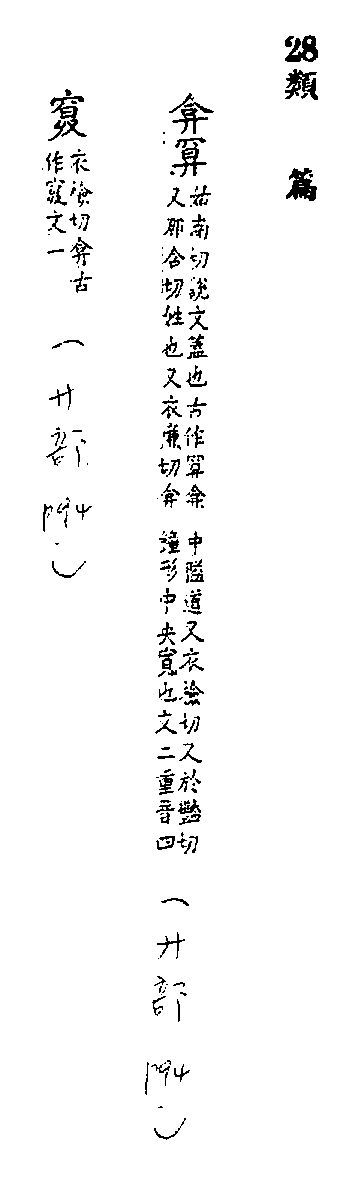 28 類篇
弇算
姑南切說文蓋也古作算弇
又那含切姓也又衣廉切弇
中隘道又衣檢切又於豔切
鐘形中央寬也文二重音四
(廾部 p94.)
衣檢切弇古
作 文一
(廾部 p94.)